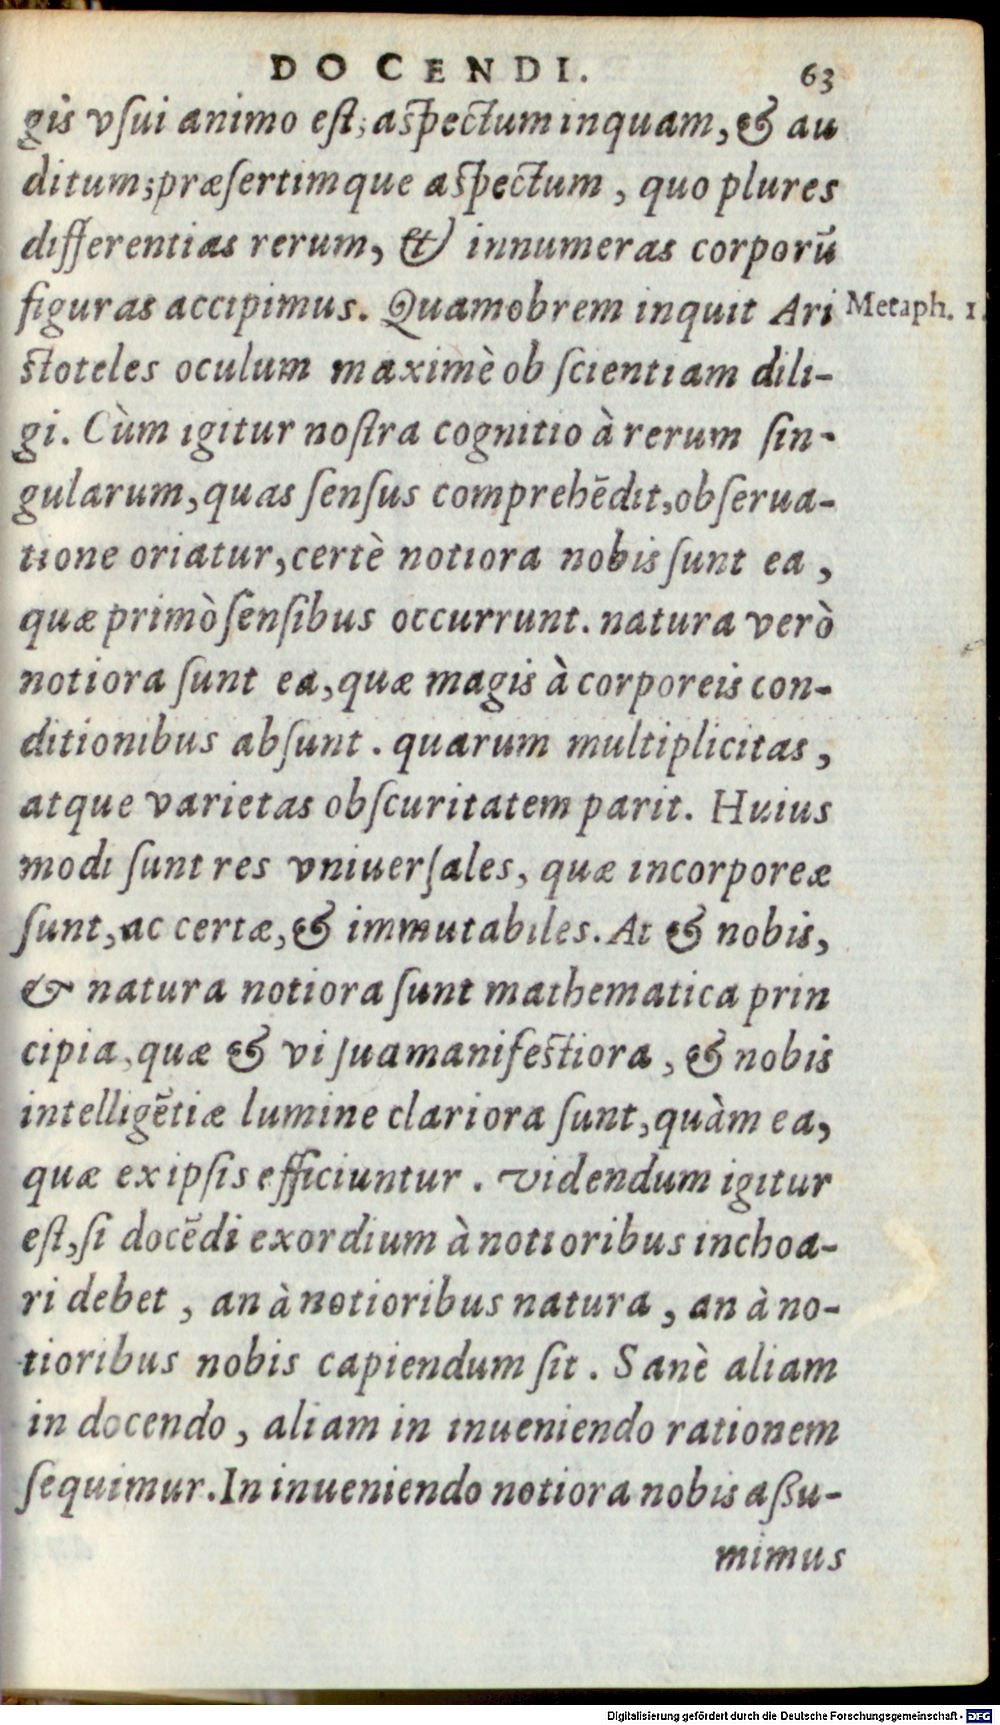 DOCENDI. 63
gis vſui animo eſt; aſpectum inquam, & au
ditum; præſertimque aſpectum, quo plures
differentias rerum, & innumeras corporū
figuras accipimus. Quamobrem inquit Ari
Metaph. 1.
ſtoteles oculum maximè ob ſcientiam dili-
gi. Cùm igitur noſtra cognitio à rerum ſin-
gularum, quas ſenſus comprehēdit, obſerua-
tione oriatur, certè notiora nobis ſunt ea,
quæ primò ſenſibus occurrunt. natura verò
notiora ſunt ea, quæ magis à corporeis con-
ditionibus abſunt. quarum multiplicitas,
atque varietas obſcuritatem parit. Huius
modi ſunt res vniuerſales, quæ incorporeæ
ſunt, ac certæ, & immutabiles. At & nobis,
& natura notiora ſunt mathematica prin
cipia, quæ & vi ſua manifeſtiora, & nobis
intelligētiæ lumine clariora ſunt, quàm ea,
quæ ex ipſis efficiuntur. Videndum igitur
eſt, ſi docēdi exordium à notioribus inchoa-
ri debet, an à notioribus natura, an à no-
tioribus nobis capiendum ſit. Sanè aliam
in docendo, aliam in inueniendo rationem
ſequimur. In inueniendo notiora nobis aßu-
mimus
Digitalisierung gefördert durch die Deutsche Forschungsgemeinschaft - DFG